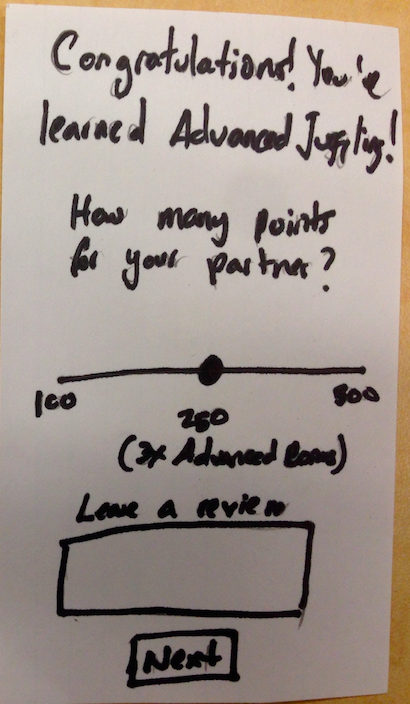 Congratulations! You've
learned Advanced Juggling!
How many points
for your partner?
100
500
250
(3x Advanced Bonus)
Leave a review
Next